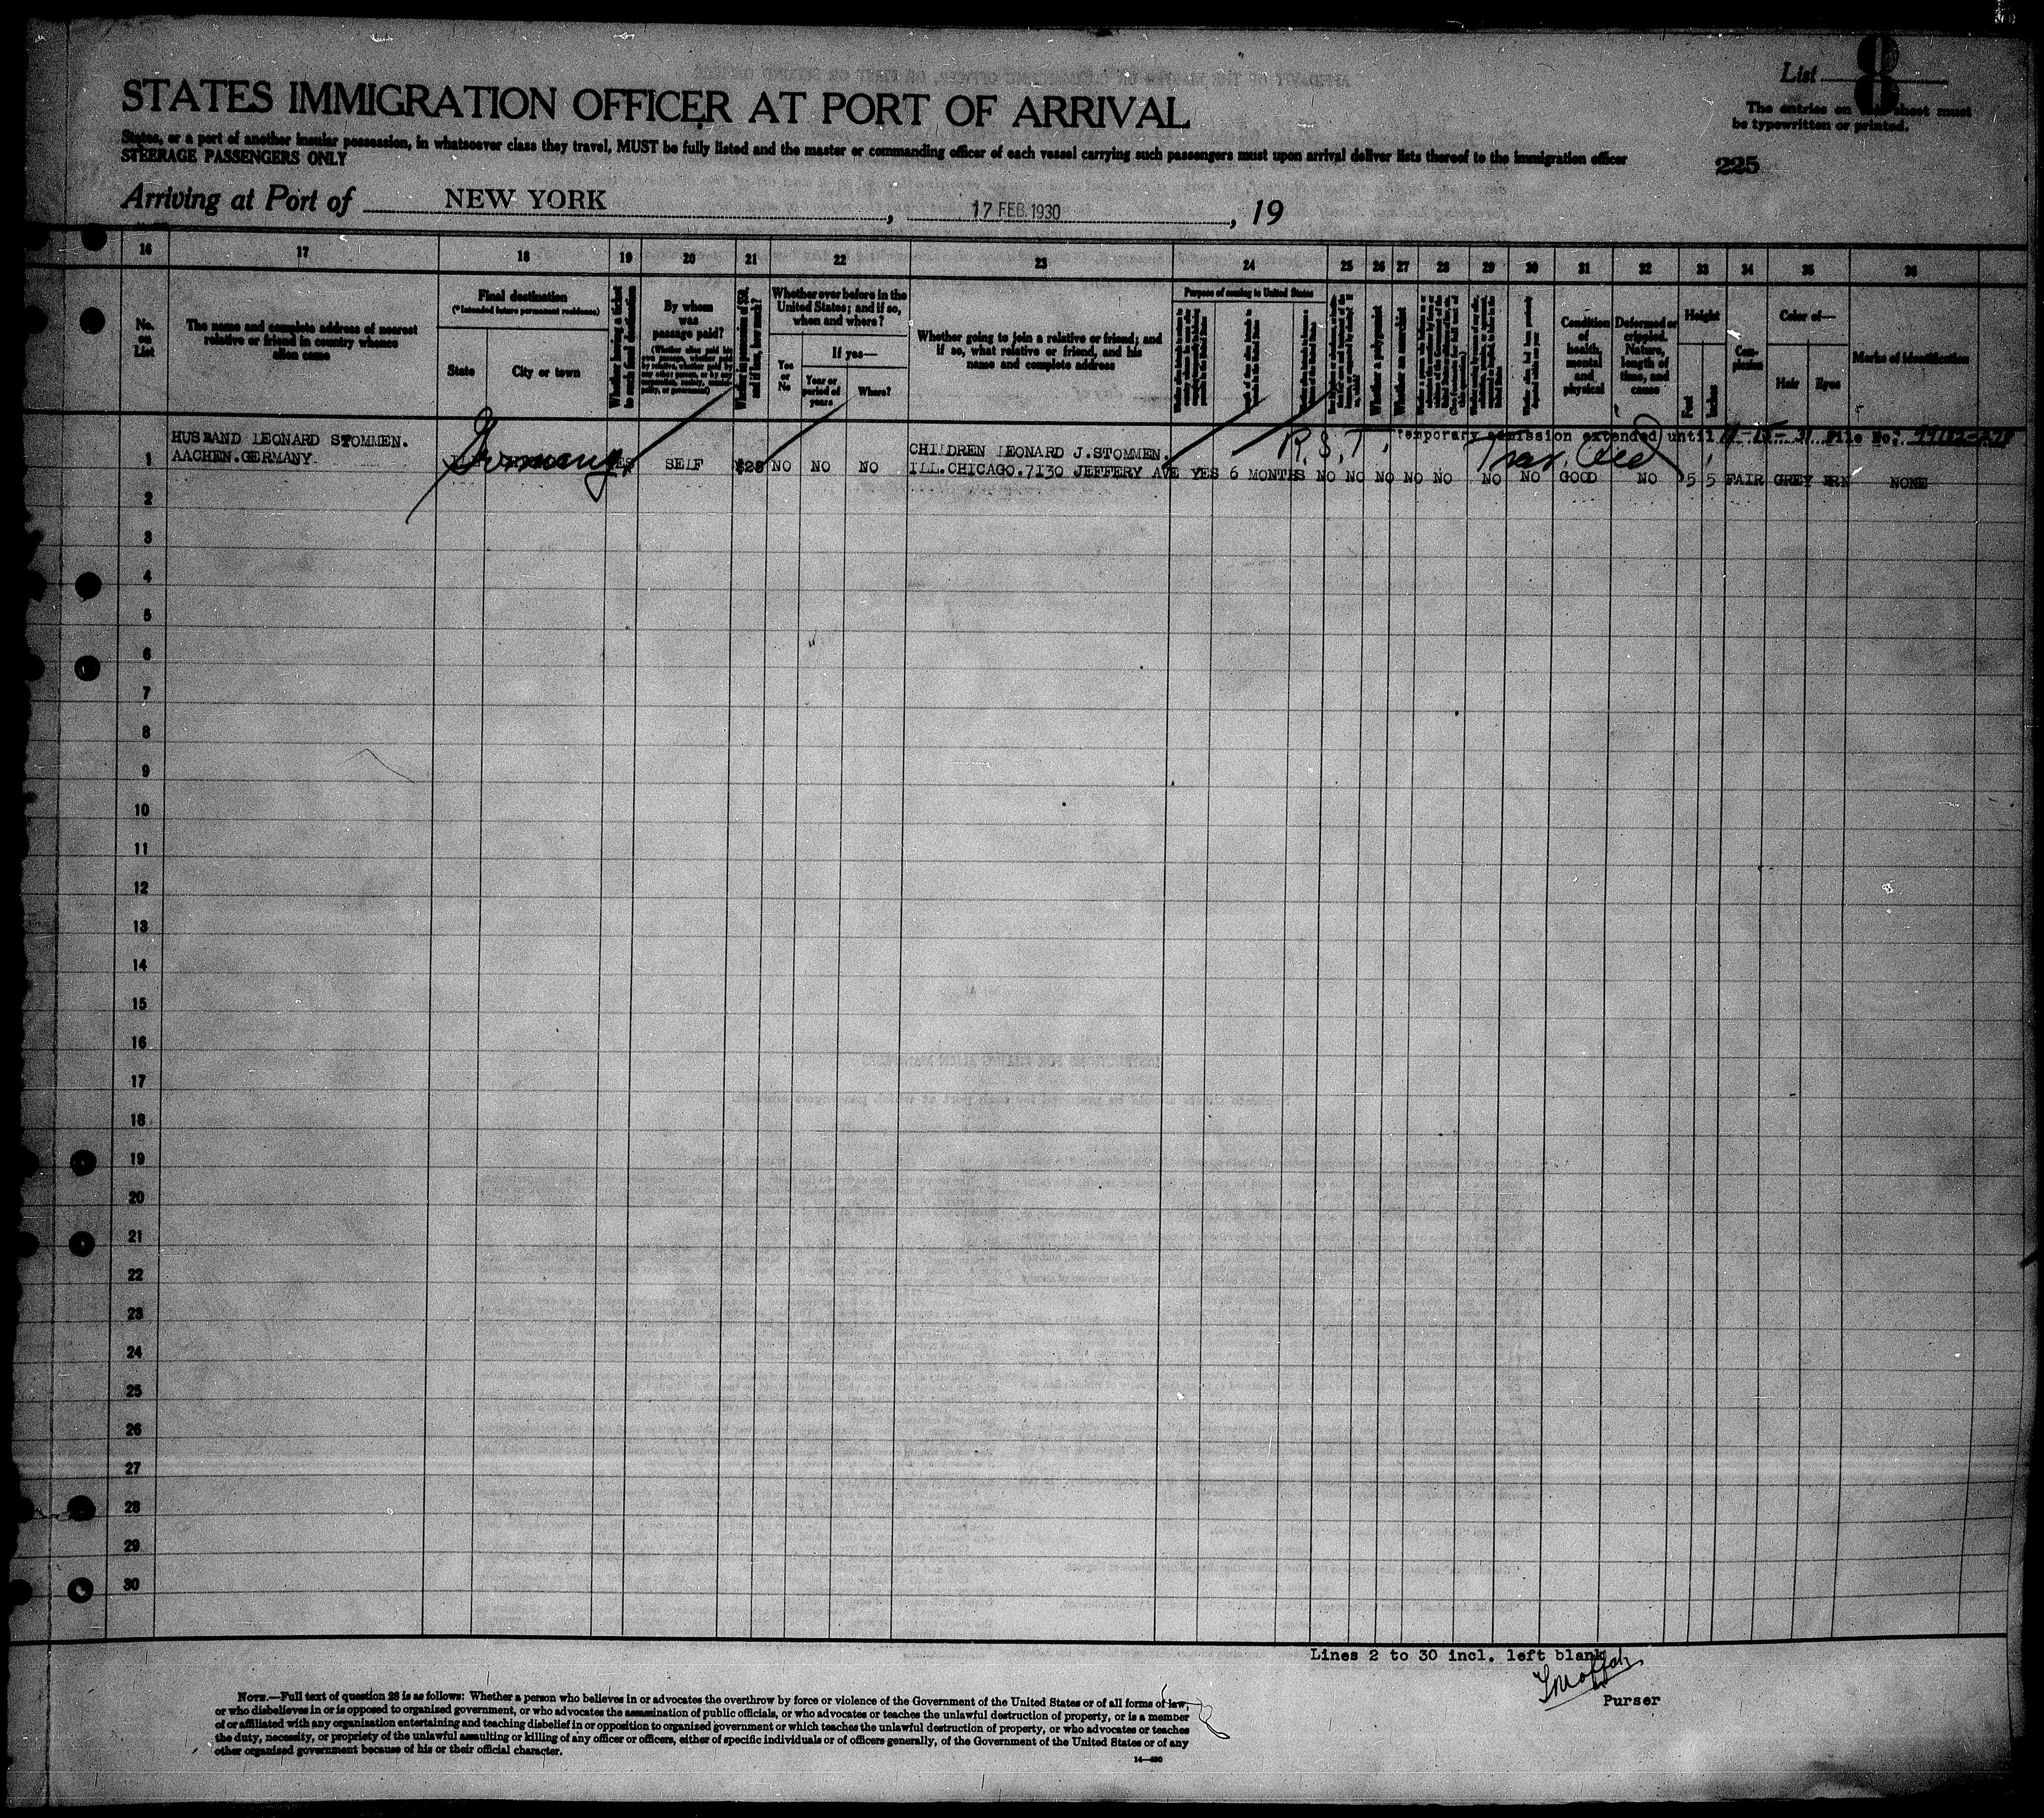 List 8
STATES IMMIGRATION OFFICER AT PORT OF ARRIVAL
The entries on sheet must
be typewritten or printed.
States, or a port of another insular possession, in whatsoever class they travel, MUST be fully listed and the master or commanding officer of each vessel carrying such passengers must upon arrival deliver lists thereof to the immigration officer
STEERAGE PASSENGERS ONLY
225
Arriving at Port of NEW YORK, 17 FEB. 1930, 19
16 17 18 19 20 21 22 23 24 25 26 27 28 29 30 31 32 33 34 35 36
No.
on
List
The name and complete address of nearest
relative or friend in country whence
alien came
Final destination
(*Intended future permanent residence)
State
City or town
Whether having a ticket
to such final destination
By whom
was
passage paid?
Whether in possession of $50,
and if less, how much?
Whether ever before in the
United States; and if so,
when and where?
Yes
or
No
If yes—
Year or
period of
years
Where?
Whether going to join a relative or friend; and
if so, what relative or friend, and his
name and complete address
Purpose of coming to United States
Whether a polygamist
Whether an anarchist
Condition
of
health,
mental
and
physical
Deformed or
crippled.
Nature,
length of
time, and
cause
Height
Feet
Inches
Com-
plexion
Color of—
Hair
Eyes
Marks of identification
R.S.T. Temporary admission extended until File No.
HUSBAND LEONARD STOMMEN.
AACHEN.GERMANY.
Germany
CHILDREN LEONARD J.STOMMEN.
1 SELF $25 NO NO NO ILL.CHICAGO.7130 JEFFERY AVE YES 6 MONTHS NO NO NO NO NO NO NO GOOD NO 5 5 FAIR GREY BRN NONE
2
3
4
5
6
7
8
9
10
11
12
13
14
15
16
17
18
19
20
21
22
23
24
25
26
27
28
29
30
Lines 2 to 30 incl. left blank
Purser
NOTE.—Full text of question 28 is as follows: Whether a person who believes in or advocates the overthrow by force or violence of the Government of the United States or of all forms of law,
or who disbelieves in or is opposed to organized government, or who advocates the assassination of public officials, or who advocates or teaches the unlawful destruction of property, or is a member
of or affiliated with any organization entertaining and teaching disbelief in or opposition to organized government or which teaches the unlawful destruction of property, or who advocates or teaches
the duty, necessity, or propriety of the unlawful assaulting or killing of any officer or officers, either of specific individuals or of officers generally, of the Government of the United States or of any
other organized government because of his or their official character.
14—480